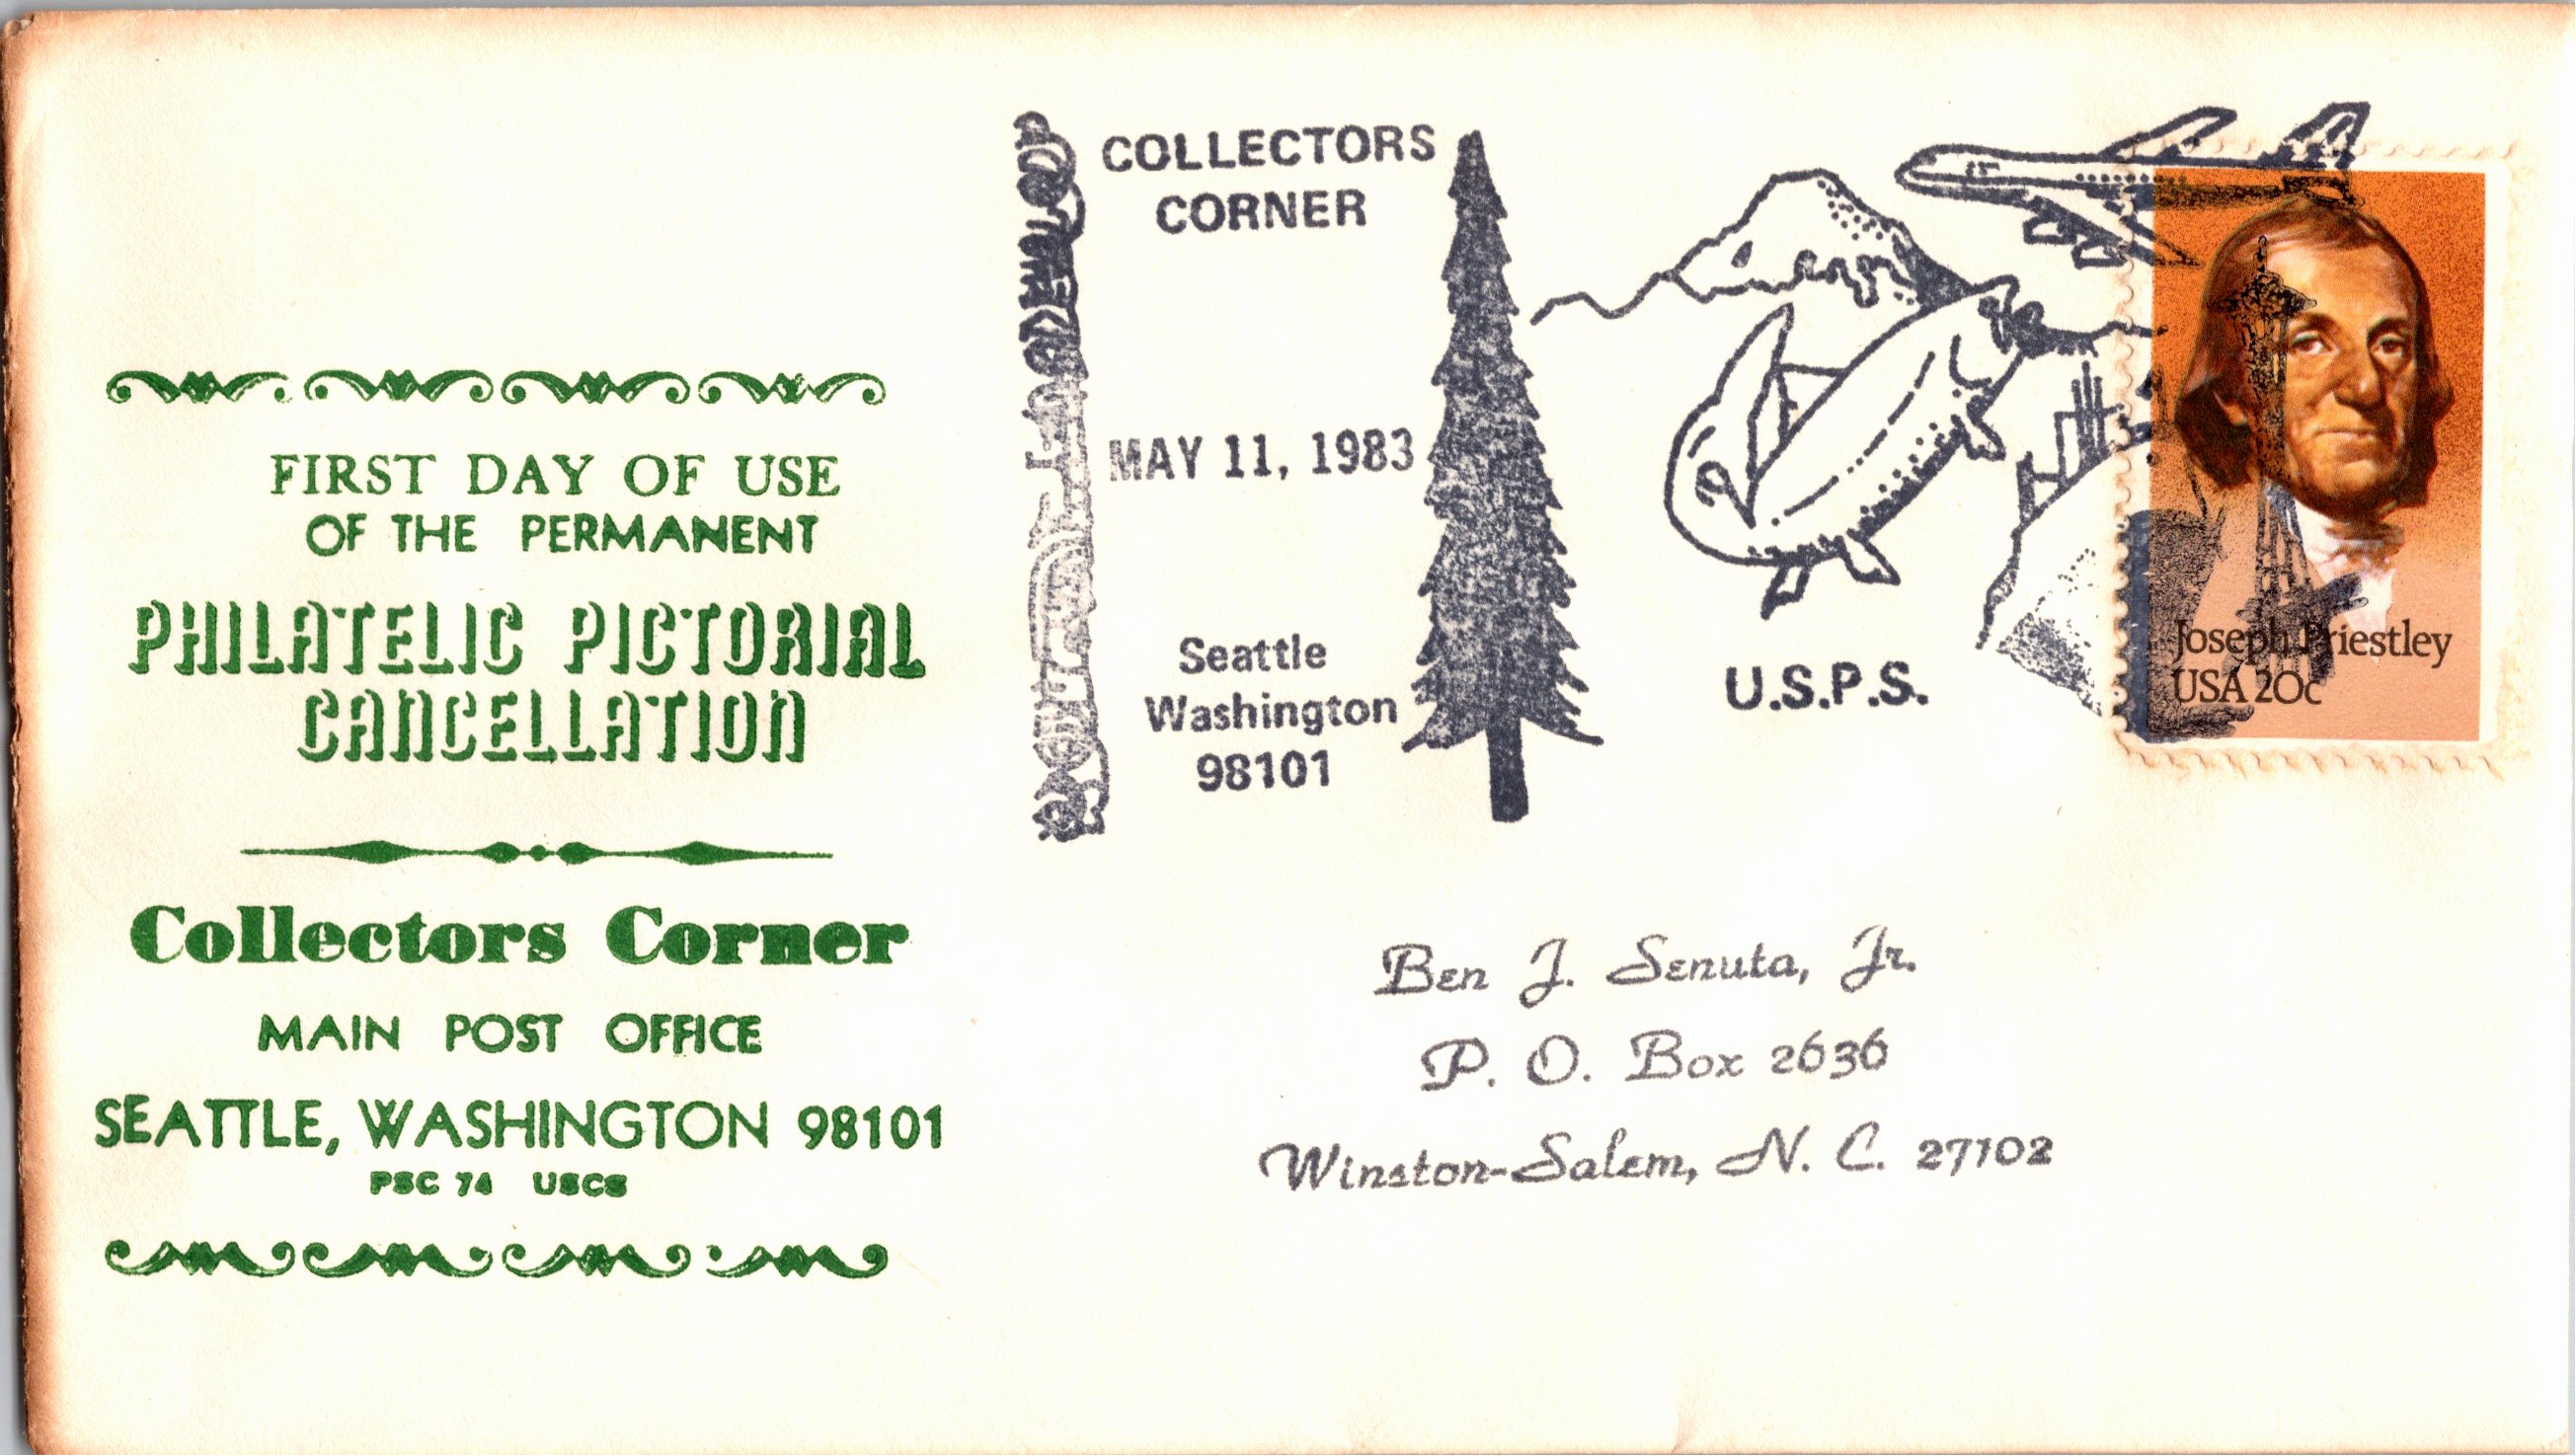 FIRST DAY OF USE
OF THE PERMANENT
PHILATELIC PICTORIAL
CANCELLATION
Collectors Corner
MAIN POST OFFICE
SEATTLE, WASHINGTON 98101
PSC 74 USCS
COLLECTORS
CORNER
MAY 11, 1983
Seattle
Washington
98101
U.S.P.S.
Joseph Priestley
USA 20c
Ben J. Senuta, Jr.
P. O. Box 2636
Winston-Salem, N. C. 27102